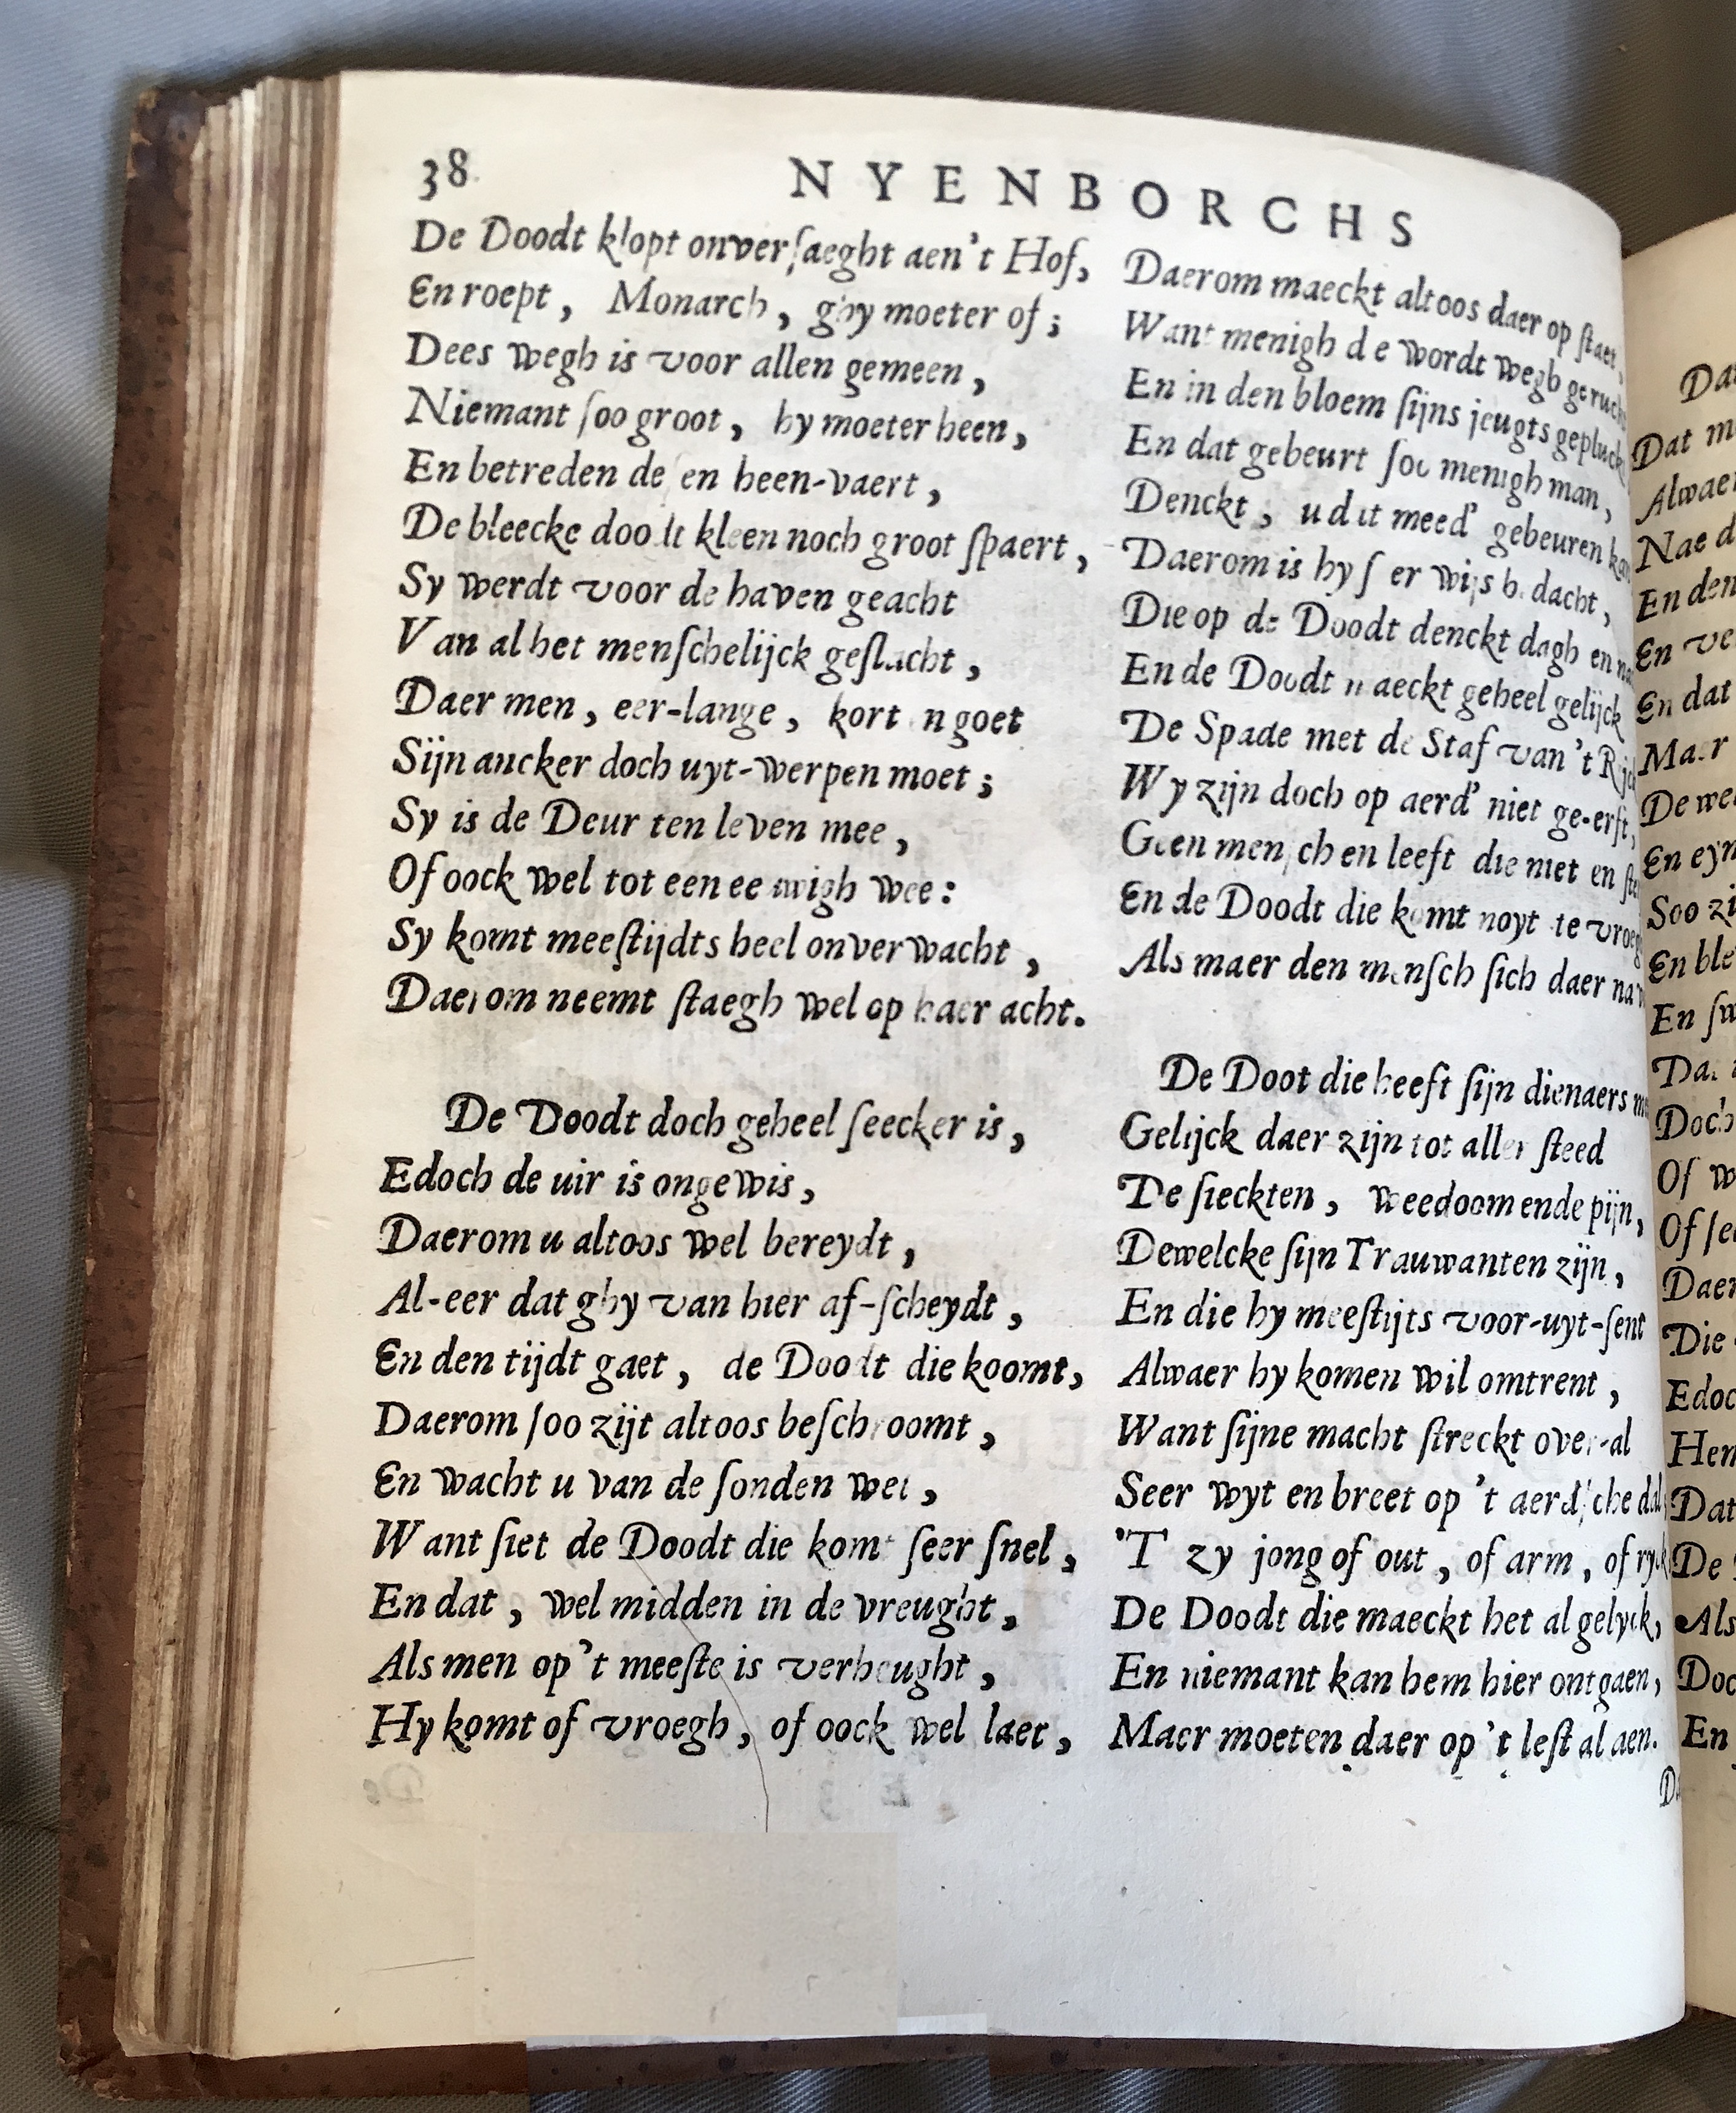 38
NYENBORCHS
De Doodt klopt onverſaeght aen't Hof,
En roept, Monarch, ghy moeter of;
Dees wegh is voor allen gemeen,
Niemant ſoo groot, hy moeter heen,
En betreden de en heen-vaert,
De bleecke doodt kleen noch groot ſpaert,
Sy werdt voor de haven geacht
Van al het menſchelijck geſlacht,
Daer men, eer-lange, kort n goet
Sijn ancker doch uyt-werpen moet;
Sy is de Deur ten leven mee,
Of oock wel tot een eewigh wee:
Sy komt meeſtijdts heel onverwacht,
Daerom neemt ſtaegh wel op haer acht.
De Doodt doch geheel ſeecker is,
Edoch de uir is ongewis,
Daerom u altoos wel bereydt,
Al-eer dat ghy van hier af-ſcheydt,
En den tijdt gaet, de Doodt die koomt,
Daerom ſoo zijt altoos beſchroomt,
En wacht u van de ſonden wel,
Want ſiet de Doodt die komt ſeer ſnel,
En dat, wel midden in de vreught,
Als men op't meeſte is verheught,
Hy komt of vroegh, of oock wel laet,
Daerom maeckt altoos daer op ſtaet,
Want menigh de wordt wegh geruckt
En in den bloem ſijns jeugts gepluckt
En dat gebeurt ſoo menigh man,
Denckt, u dit meed' gebeuren kan
Daerom is hy ſeer wijs bedacht,
Die op de Doodt denckt dagh en
En de Doodt maeckt geheel gelijck
De Spade met de Staf van 't Rijck
Wy zijn doch op aerd' niet ge-erft,
Geen menſchen leeft die niet en
En de Doodt die komt noyt te vroegh
Als maer den menſch ſich daer na
De Doot die heeft ſijn dienaers
Gelijck daer zijn tot aller ſteed
De ſieckten, weedoom ende pijn,
Dewelcke ſijn Trauwanten zijn,
En die hy meeſtijts voor-uyt-ſent
Alwaer hy komen wil omtrent,
Want ſijne macht ſtreckt over-al
Seer wyt en breet op 't aerdſche dal,
'T zy jong of out, of arm, of ryck
De Doodt die maeckt het al gelyck,
En niemant kan hem hier ontgaen,
Maer moeten daer op 't leſt al aen.
Dat
Alwaer
Nae
En den
En
En dat
Maer
De
En
Soo
En
En
Doch
Of
Of
Daer
Die
Edoc
Dat
De
Als
En